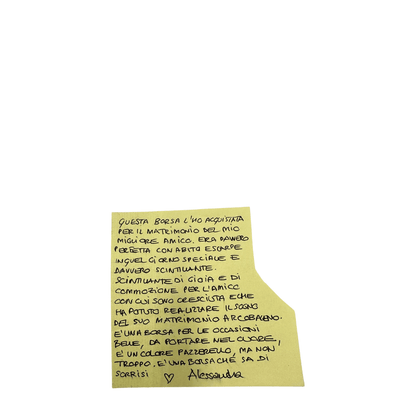 QUESTA BORSA L'HO ACQUISTATA
PER IL MATRIMONIO DEL MIO
MIGLIORE AMICO. ERA DAVVERO
PERFETTA CON ABITO E SCARPE
IN QUEL GIORNO SPECIALE E
DAVVERO SCINTILLANTE.
SCINTILLANTE DI GIOIA E DI
COMMOZIONE PER L'AMICO
CON CUI SONO CRESCIUTA E CHE
HA POTUTO REALIZZARE IL SOGNO
DEL SUO MATRIMONIO ARCOBALENO.
E' UNA BORSA PER LE OCCASIONI
BELLE, DA PORTARE NEL CUORE,
E' UN COLORE PAZZERELLO, MA NON
TROPPO. E' UNA BORSA CHE SA DI
SORRISI ♡ Alessandra